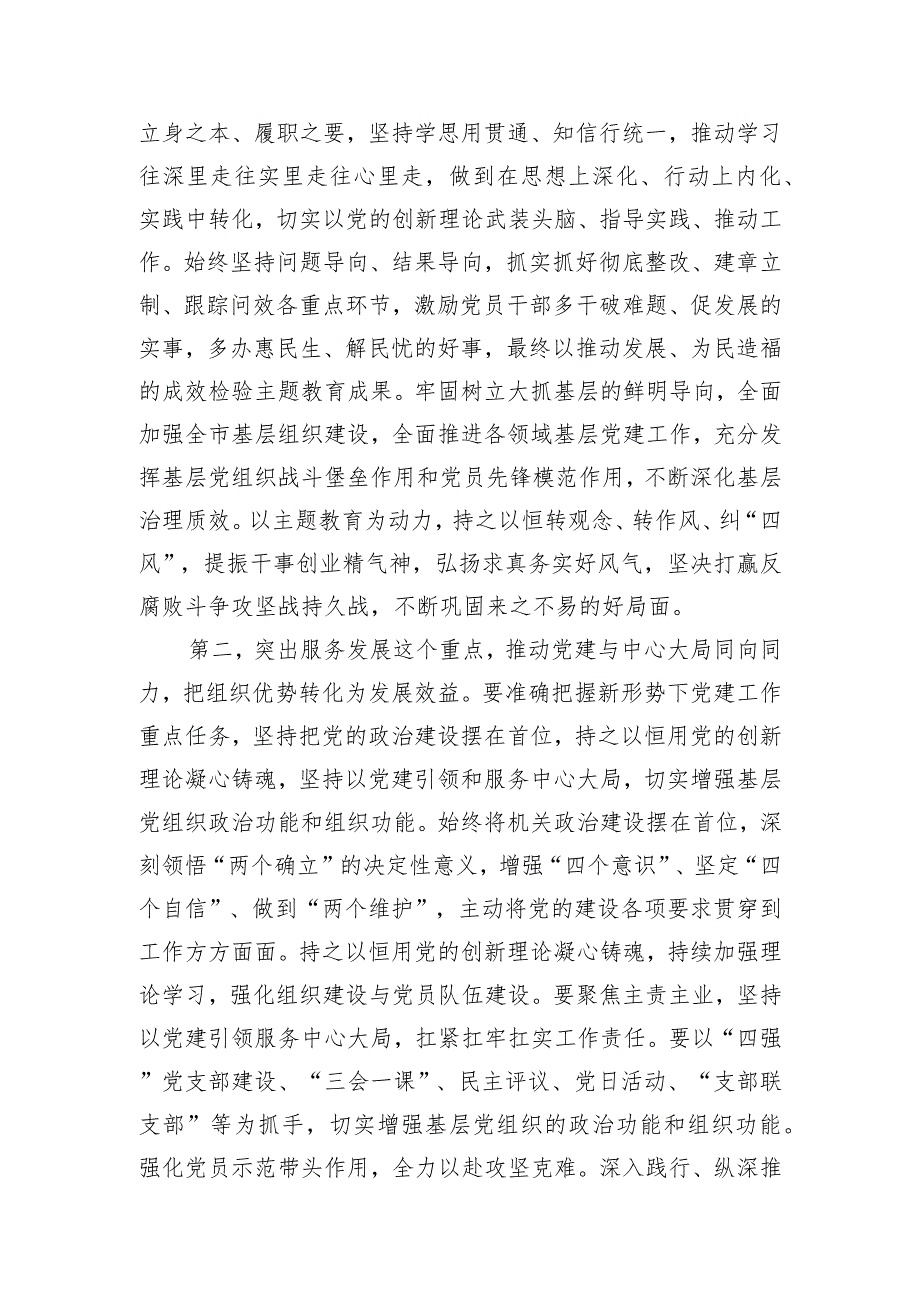 立身之本、履职之要，坚持学思用贯通、知信行统一，推动学习
往深里走往实里走往心里走，做到在思想上深化、行动上内化、
实践中转化，切实以党的创新理论武装头脑、指导实践、推动工
作。始终坚持问题导向、结果导向，抓实抓好彻底整改、建章立
制、跟踪问效各重点环节，激励党员干部多干破难题、促发展的
实事，多办惠民生、解民忧的好事，最终以推动发展、为民造福
的成效检验主题教育成果。牢固树立大抓基层的鲜明导向，全面
加强全市基层组织建设，全面推进各领域基层党建工作，充分发
挥基层党组织战斗堡垒作用和党员先锋模范作用，不断深化基层
治理质效。以主题教育为动力，持之以恒转观念、转作风、纠“四
风”，提振干事创业精气神，弘扬求真务实好风气，坚决打赢反
腐败斗争攻坚战持久战，不断巩固来之不易的好局面。
第二，突出服务发展这个重点，推动党建与中心大局同向同
力，把组织优势转化为发展效益。要准确把握新形势下党建工作
重点任务，坚持把党的政治建设摆在首位，持之以恒用党的创新
理论凝心铸魂，坚持以党建引领和服务中心大局，切实增强基层
党组织政治功能和组织功能。始终将机关政治建设摆在首位，深
刻领悟“两个确立”的决定性意义，增强“四个意识”、坚定“四
个自信”、做到“两个维护”，主动将党的建设各项要求贯穿到
工作方方面面。持之以恒用党的创新理论凝心铸魂，持续加强理
论学习，强化组织建设与党员队伍建设。要聚焦主责主业，坚持
以党建引领服务中心大局，扛紧扛牢扛实工作责任。要以“四强
”党支部建设、“三会一课”、民主评议、党日活动、“支部联
支部”等为抓手，切实增强基层党组织的政治功能和组织功能。
强化党员示范带头作用，全力以赴攻坚克难。深入践行、纵深推